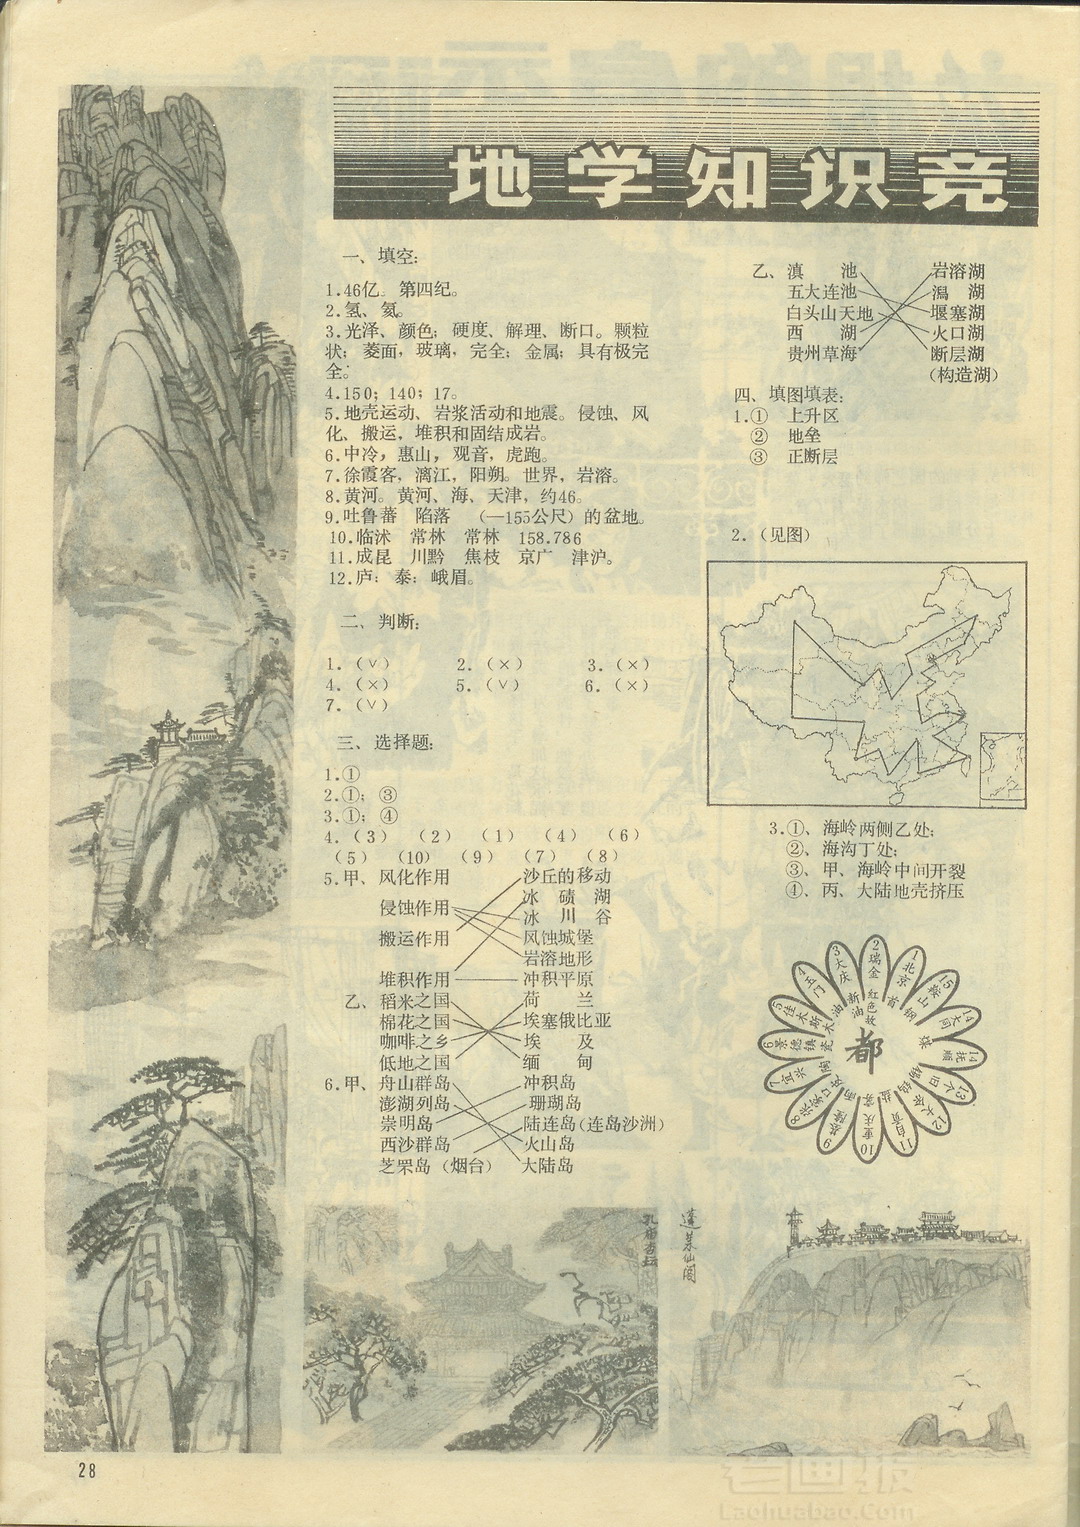 地学知识竞
一、填空:
1.46亿。第四纪。
2.氢、氦。
3.光泽、颜色;硬度、解理、断口。颗粒
状;菱面,玻璃,完全;金属;具有极完
全。
4.150;140;17。
5.地壳运动、岩浆活动和地震。侵蚀、风
化、搬运,堆积和固结成岩。
6.中冷,惠山,观音,虎跑。
7.徐霞客,漓江,阳朔。世界,岩溶。
8.黄河。黄河、海、天津,约46。
9.吐鲁蕃 陷落 (—155公尺)的盆地。
10.临沭 常林 常林 158.786
11.成昆 川黔 焦枝 京广 津沪。
12.庐;泰;峨眉。
二、判断:
1.(∨) 2.(×) 3.(×)
4.(×) 5.(∨) 6.(×)
7.(∨)
三、选择题:
1.①
2.①;③
3.①;④
4.(3) (2) (1) (4) (6)
(5) (10) (9) (7) (8)
5.甲、风化作用 沙丘的移动
冰碛湖
侵蚀作用
冰川谷
搬运作用 风蚀城堡
岩溶地形
堆积作用 冲积平原
乙、稻米之国 荷兰
棉花之国 埃塞俄比亚
咖啡之乡 埃及
低地之国 缅甸
6.甲、舟山群岛 冲积岛
澎湖列岛 珊瑚岛
崇明岛 陆连岛(连岛沙洲)
西沙群岛 火山岛
芝罘岛(烟台) 大陆岛
乙、滇池 岩溶湖
五大连池 潟湖
白头山天地 堰塞湖
西湖 火口湖
贵州草海 断层湖
(构造湖)
四、填图填表:
1.① 上升区
② 地垒
③ 正断层
2.(见图)
3.①、海岭两侧乙处;
②、海沟丁处;
③、甲、海岭中间开裂
④、丙、大陆地壳挤压
都
1北京 首
2瑞金 红色故
3大庆 新油
4玉门 油
5佳木斯 木
6景德镇 瓷
7宜兴 陶
10重庆 雾
11自贡 盐
14抚顺 煤
15鞍山 钢
孔庙杏坛
蓬莱仙阁
28
老画报
Laohuabao.Com